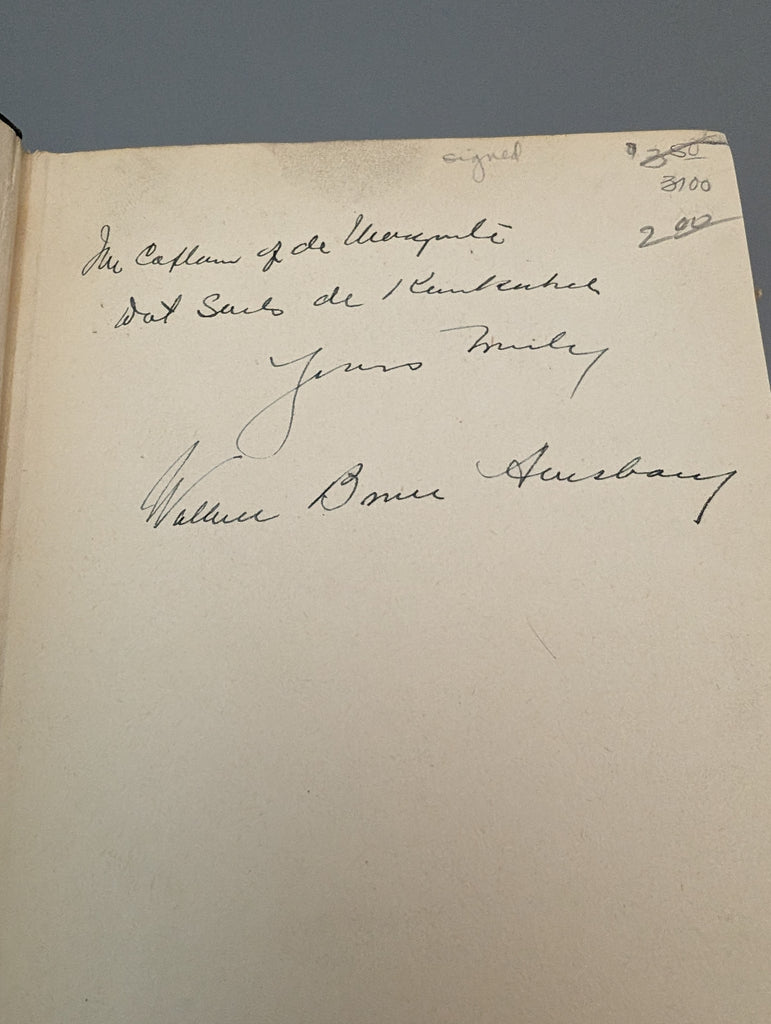 signed $3.50
3100
2.00
I'm Captain of de Marguerite
Dat Sails de Kankakee
Yours Truly
Wallace Bruce Amsbary